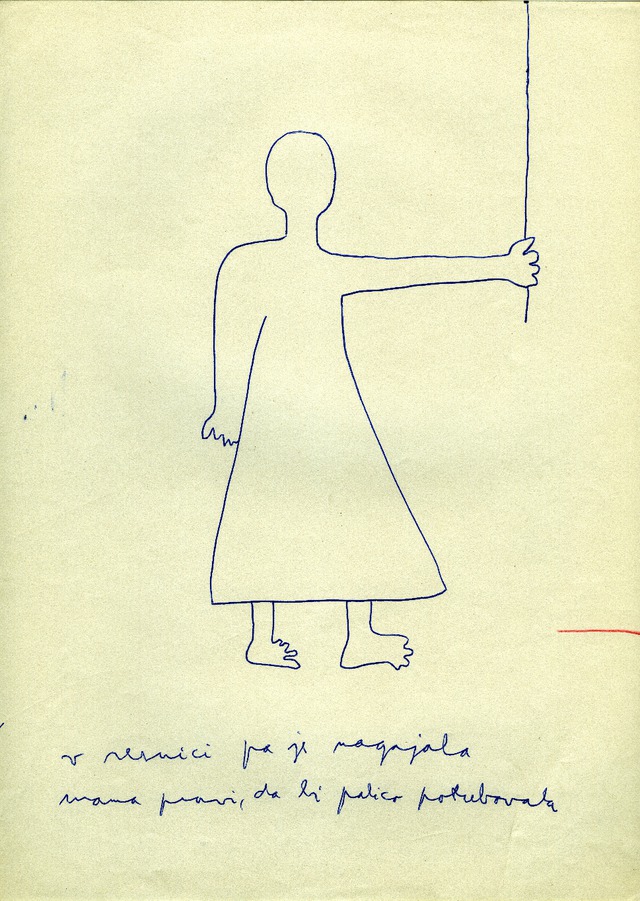 v resnici pa je nagajala
mama pravi, da bi palico potrebovala